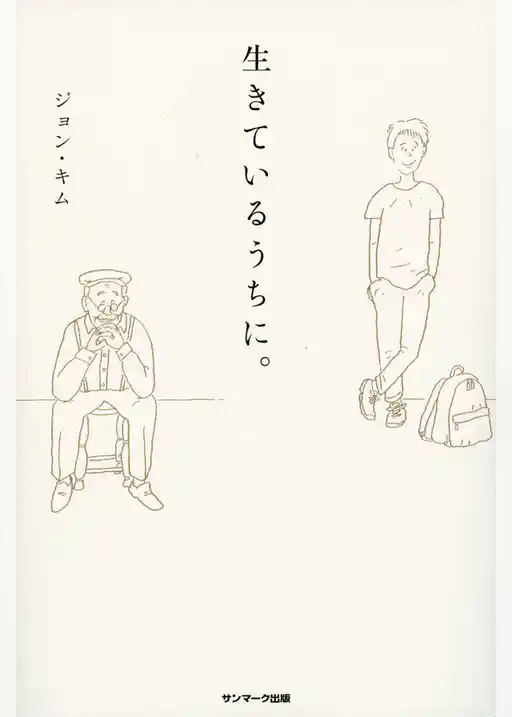 生きているうちに。
ジョン・キム
サンマーク出版